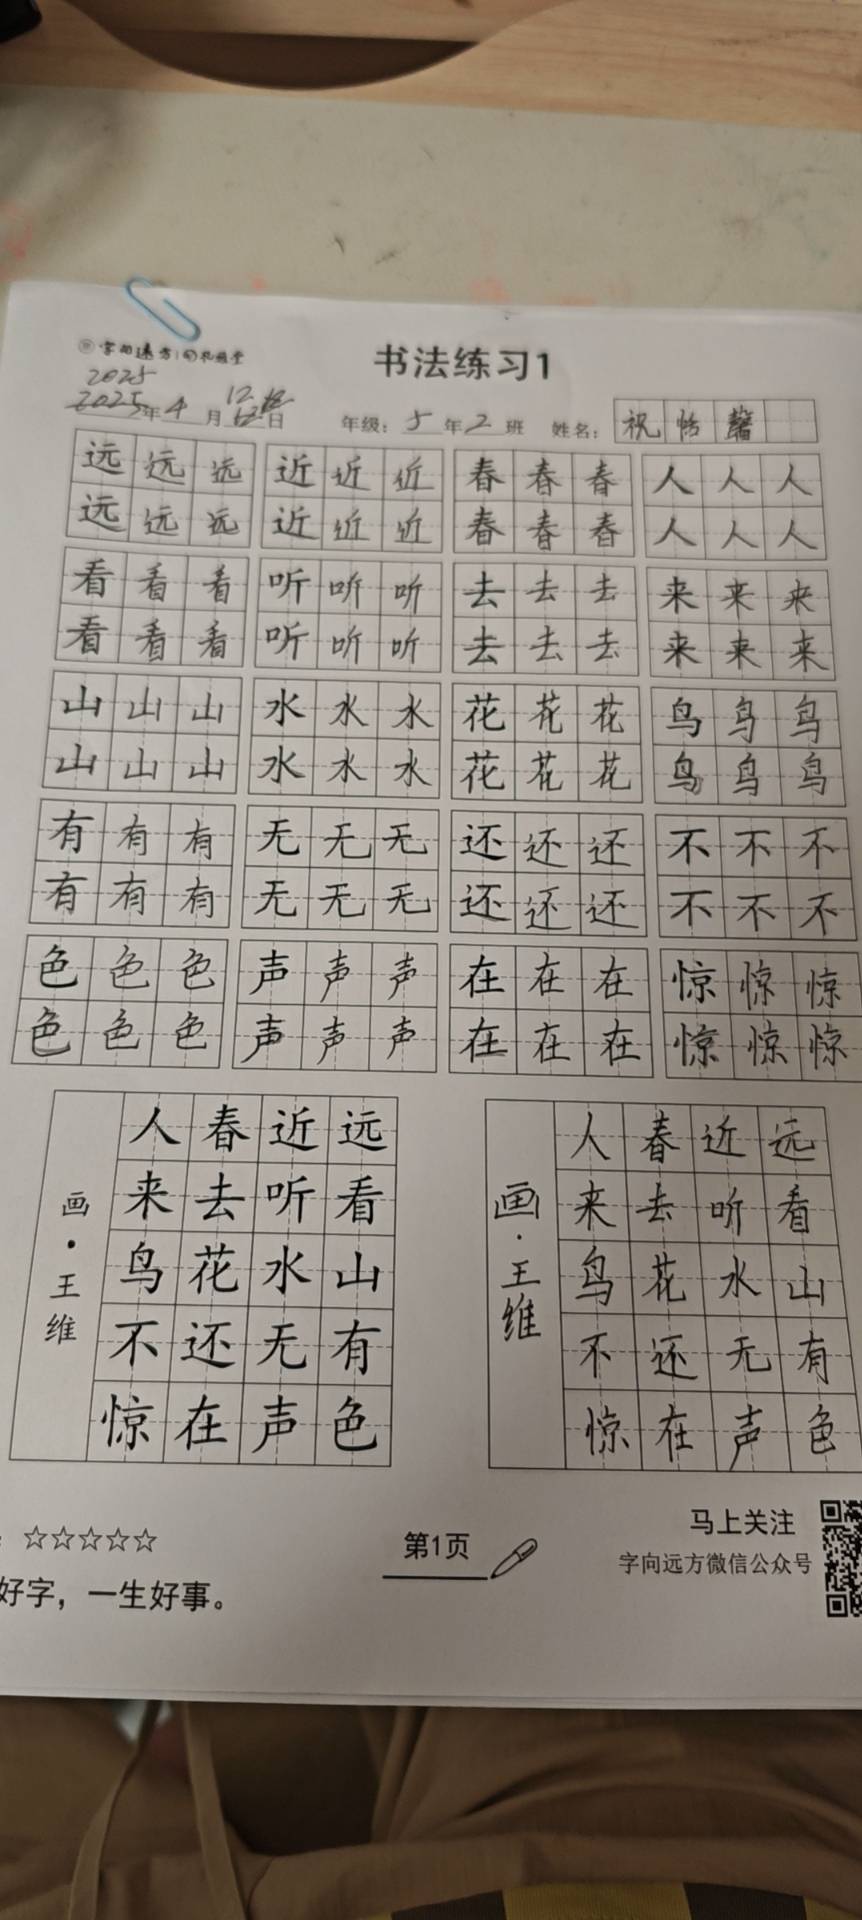 字向远方
书法练习1
2025
2025年4月12日
年级：5年2班 姓名：祝恬馨
远远远 近近近 春春春 人人人
远远远 近近近 春春春 人人人
看看看 听听听 去去去 来来来
看看看 听听听 去去去 来来来
山山山 水水水 花花花 鸟鸟鸟
山山山 水水水 花花花 鸟鸟鸟
有有有 无无无 还还还 不不不
有有有 无无无 还还还 不不不
色色色 声声声 在在在 惊惊惊
色色色 声声声 在在在 惊惊惊
远看山有色
近听水无声
春去花还在
人来鸟不惊
画·王维
远看山有色
近听水无声
春去花还在
人来鸟不惊
画·王维
：☆☆☆☆☆
好字，一生好事。
第1页
马上关注
字向远方微信公众号